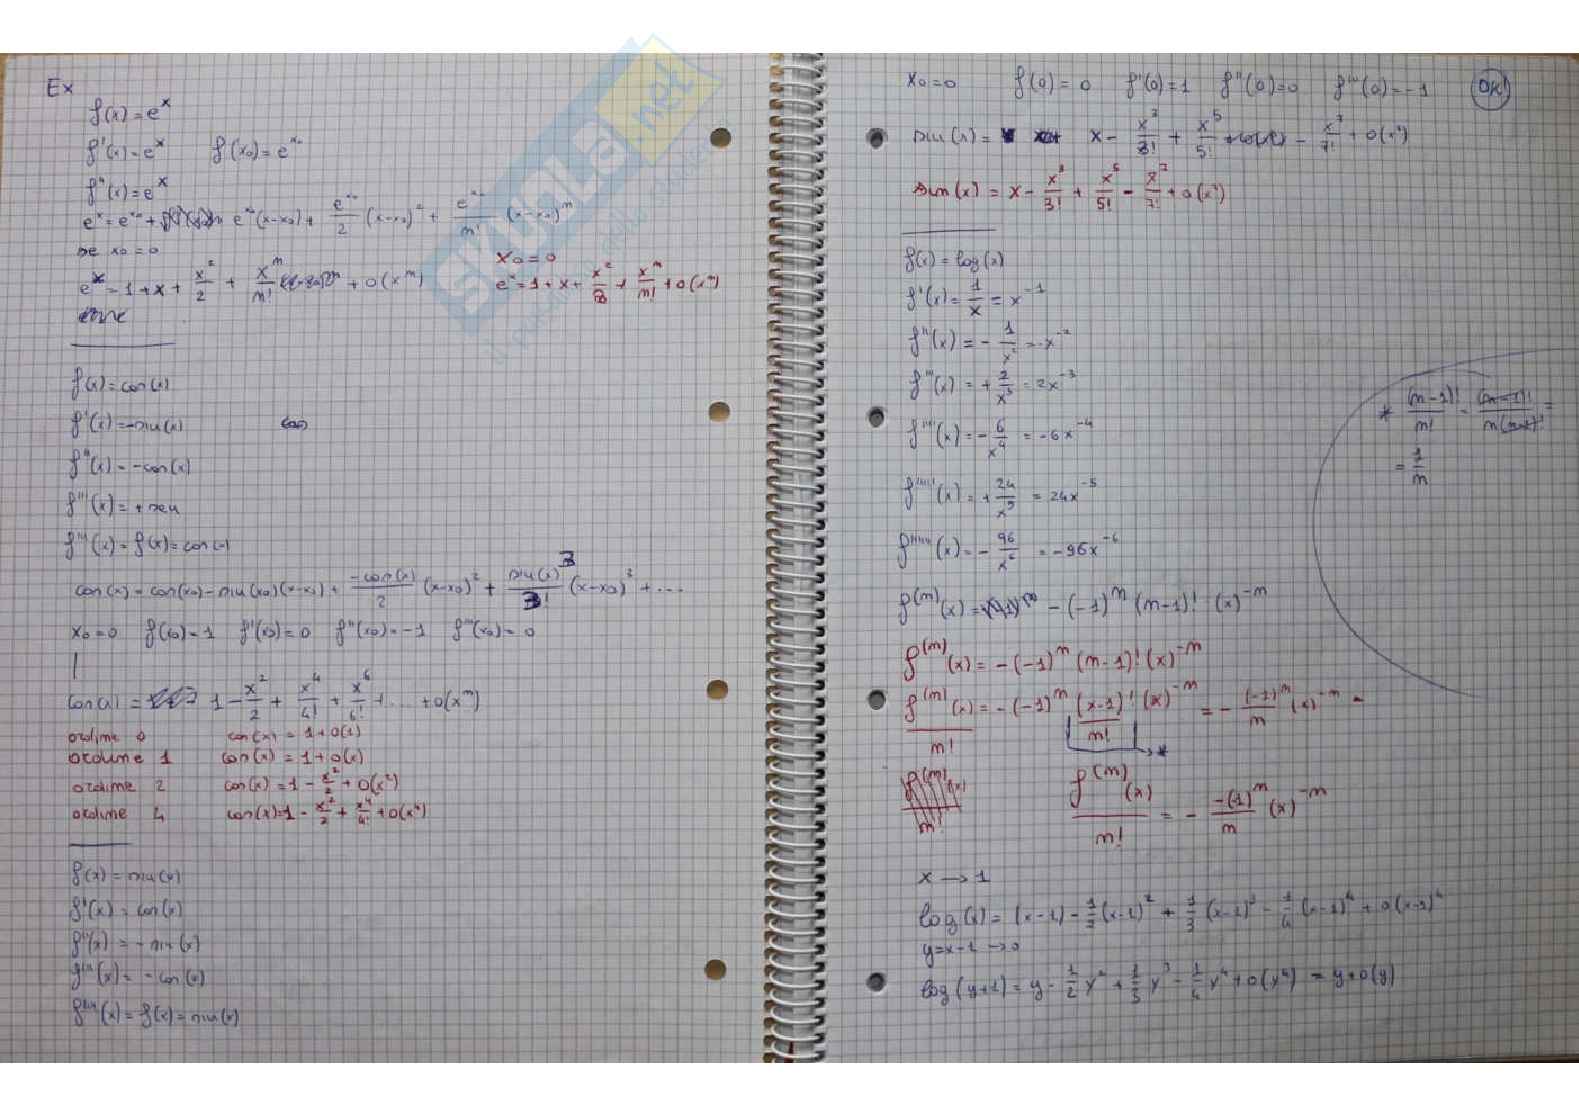 Ex
f(x) = e^x
f'(x) = e^x f(x₀) = e^x₀
f''(x) = e^x
e^x = e^x₀ + e^x₀(x-x₀) + e^x₀/2 (x-x₀)² + e^x₀/n! (x-x₀)^n
se x₀ = 0
e^x = 1 + x + x²/2 + x^n/n! + o(x^n)
x₀ = 0
e^x = 1 + x + x²/2 + x^n/n! + o(x^n)
f(x) = cos(x)
f'(x) = -sin(x)
f''(x) = -cos(x)
f'''(x) = + sen
f''''(x) = f(x) = cos(x)
cos(x) = cos(x₀) - sin(x₀)(x-x₀) + -cos(x)/2 (x-x₀)² + sin(x)/3! (x-x₀)³ + ...
x₀ = 0 f(x₀) = 1 f'(x₀) = 0 f''(x₀) = -1 f'''(x₀) = 0
cos(x) = 1 - x²/2 + x⁴/4! + x⁶/6! + ... + o(x^n)
ordine 0 cos(x) = 1 + o(1)
ordine 1 cos(x) = 1 + o(x)
ordine 2 cos(x) = 1 - x²/2 + o(x²)
ordine 4 cos(x) = 1 - x²/2 + x⁴/4! + o(x⁴)
f(x) = sin(x)
f'(x) = cos(x)
f''(x) = -sin(x)
f'''(x) = -cos(x)
f''''(x) = f(x) = sin(x)
x₀ = 0 f(0) = 0 f'(0) = 1 f''(0) = 0 f'''(0) = -1 OK!
sin(x) = x - x³/3! + x⁵/5! - x⁷/7! + o(x⁷)
sin(x) = x - x³/3! + x⁵/5! - x⁷/7! + o(x⁷)
f(x) = log(x)
f'(x) = 1/x = x^-1
f''(x) = - 1/x² = -x^-2
f'''(x) = + 2/x³ = 2x^-3
f''''(x) = - 6/x⁴ = -6x^-4
f'''''(x) = + 24/x⁵ = 24x^-5
f''''''(x) = - 96/x⁶ = -96x^-6
f^(n)(x) = -(-1)^n (n-1)! (x)^-n
f^(n)(x) = -(-1)^n (n-1)! (x)^-n
f^(n)(x)/n! = -(-1)^n (x-1)!/n! (x)^-n = - (-1)^n/n (x)^-n =
*
f^(n)(x)/n! = - -(1)^n/n (x)^-n
* (n-1)!/n! = (n-1)!/n(n-1)! =
= 1/n
x → 1
log(x) = (x-1) - 1/2 (x-1)² + 1/3 (x-1)³ - 1/4 (x-1)⁴ + o(x-1)⁴
y = x-1 → 0
log(y+1) = y - 1/2 y² + 1/3 y³ - 1/4 y⁴ + o(y⁴) = y + o(y)
SKUOLA.net